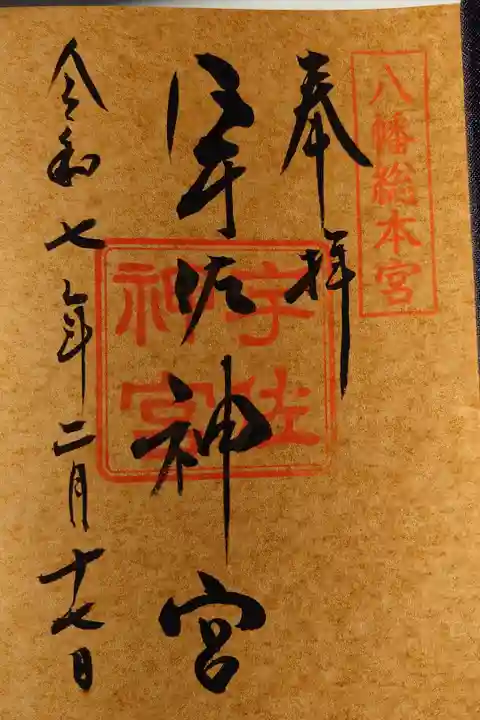 八幡総本宮
奉拝
宇佐神宮
宇佐
神宮
令和七年二月十七日